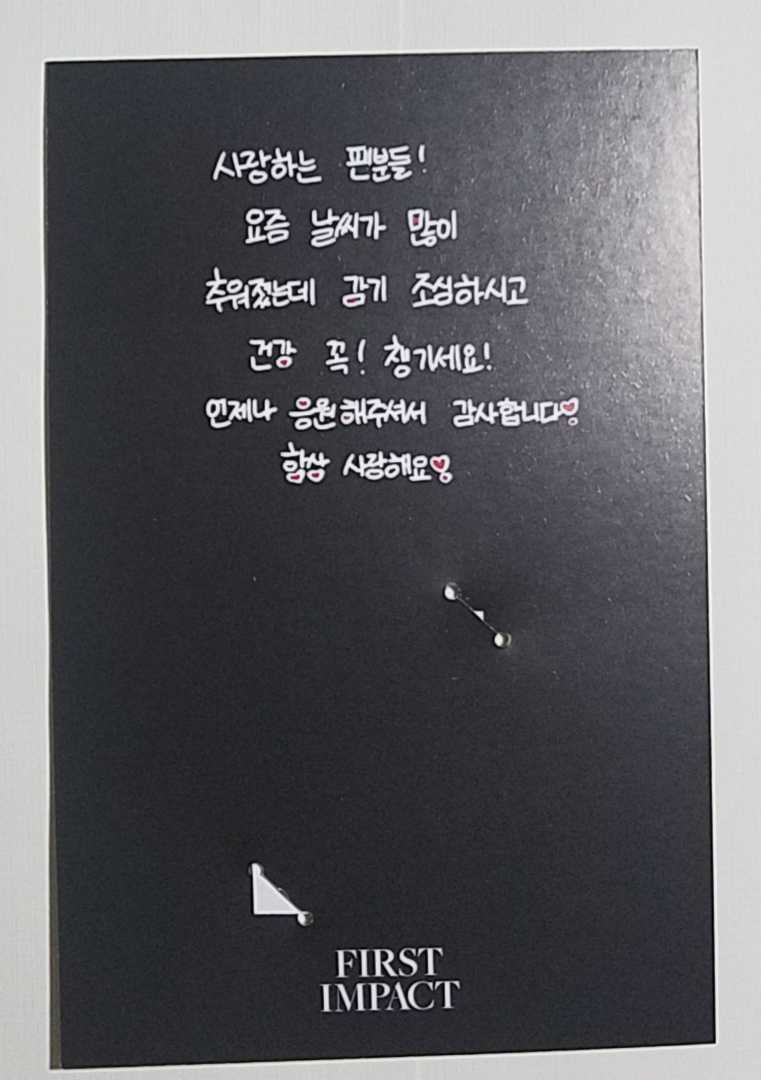 사랑하는 팬분들!
요즘 날씨가 많이
추워졌는데 감기 조심하시고
건강 꼭! 챙기세요!
언제나 응원해주셔서 감사합니다♡
항상 사랑해요♡
FIRST
IMPACT